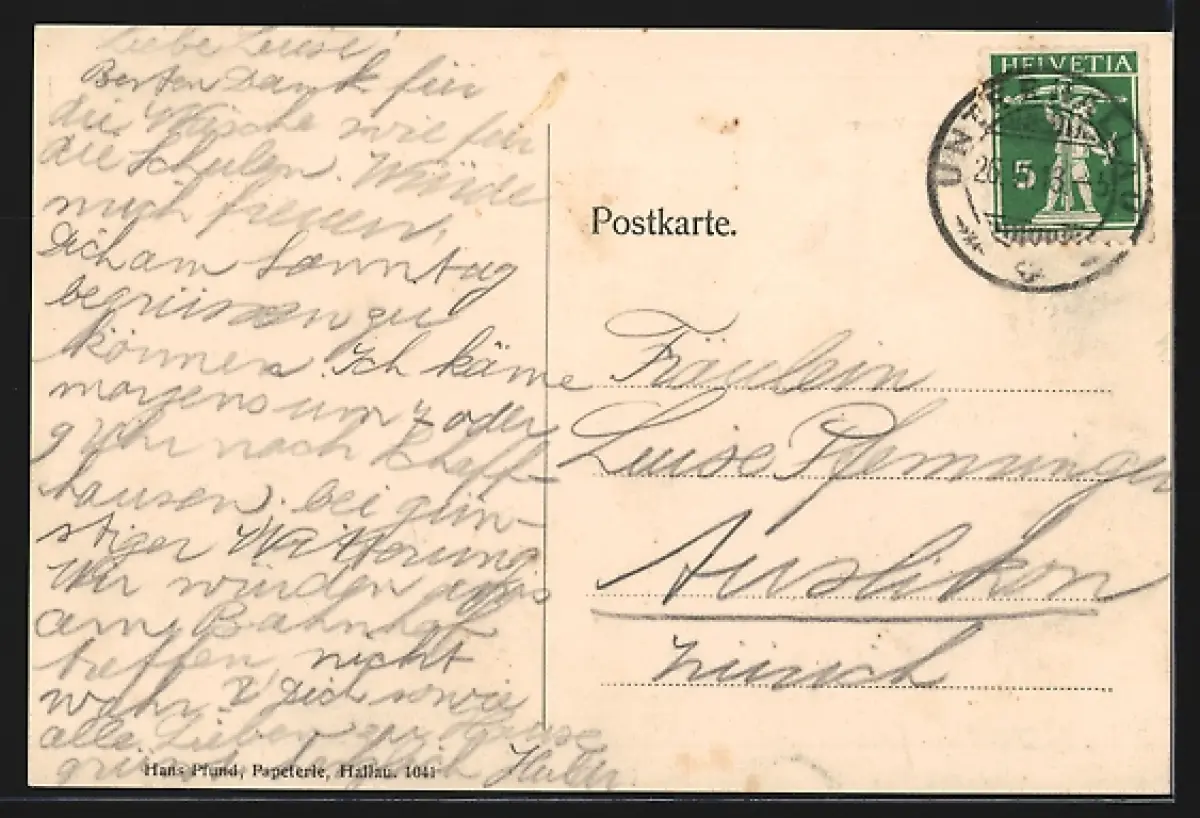 Liebe Luise!
Besten Dank für
die Wäsche wie für
die Schulen. Würde
mich freuen,
Dich am Sonntag
begrüssen zu
können. Ich käme
morgens um 7 oder
9 Uhr nach Schaff-
hausen, bei gün-
stiger Witterung.
Wir würden uns
am Bahnhof
treffen, nicht
wahr? Dich sowie
alle Lieben zu Hause
Huldr
Hans Pfund, Papeterie, Hallau. 1041
HELVETIA
5
UNTERHALLAU
26
Postkarte.
Fräulein
Luise
Auslikon
Zürich